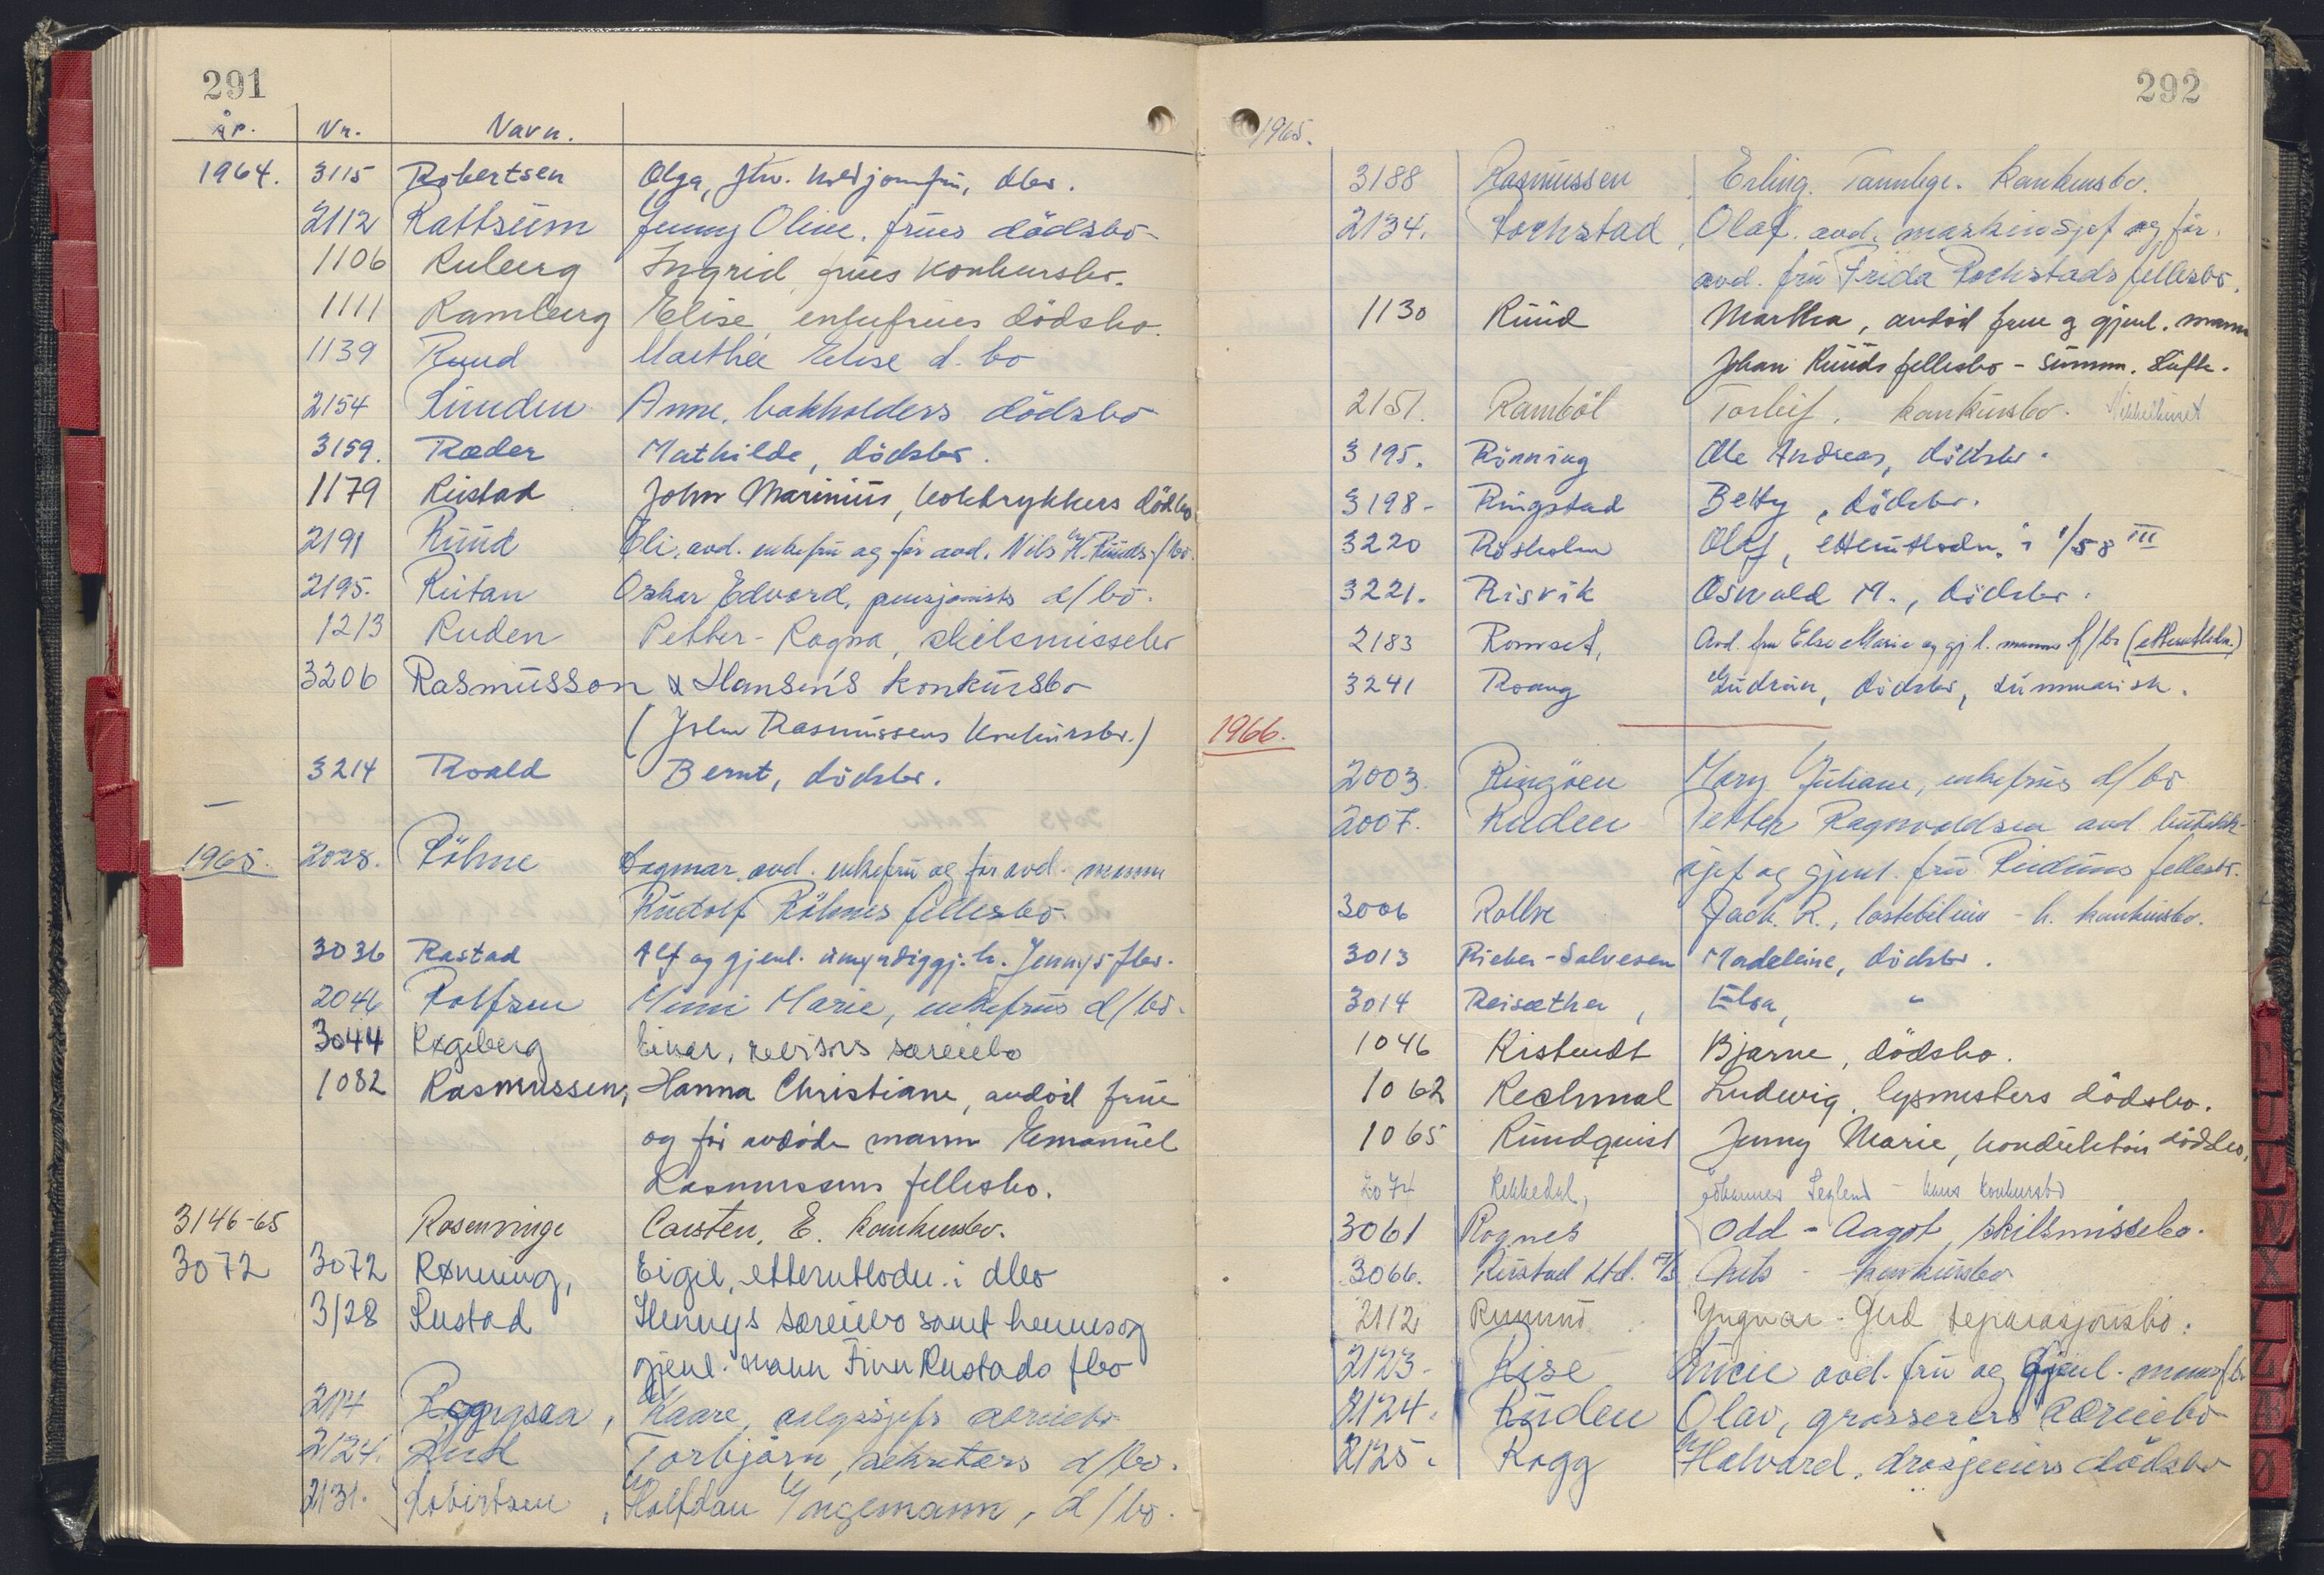 291
År. Nr. Navn.
1964. 3115 Robertsen Olga, dbo.
2112 Rattsum Jenny Oline, frues dödsbo
1106 Ruberg Ingrid, frues konkursbo.
1111 Ramberg Elise, enkefrues dödsbo.
1139 Ruud Marthea Elise d. bo
2154 Lunden Anne, bokholders dödsbo
3159. Ræder Mathilde, dödsbo.
1179 Rustad John Marinius, boktrykkers dödsbo
2191 Ruud Eli, avd. enkefru og før avd. Nils H. Ruuds f/bo.
2195. Rutan Oskar Edvard, pensjonists d/bo.
1213 Ruden Petter - Ragna, skilsmissebo
3206 Rasmusson & Hansen's konkursbo
(John Rasmussens konkursbo.)
3214 Roald Bernt, dödsbo.
1965. 2028. Röhne Dagmar, avd. enkefru og før avd. mann
Rudolf Röhnes fellesbo.
3036 Rastad Alf og gjenl. umyndiggj. h. Jennys fbo.
2046 Rolfsen Mimi Marie, enkefrus d/bo.
3044 Røgeberg Einar, revisors særeiebo
1082 Rasmussen, Hanna Christiane, avdöd frue
og før avdöde mann Emanuel
Rasmussens fellesbo.
3146-65 Rosenvinge Carsten, E. konkursbo.
3072 3072 Rønning, Eigil, etterutlodn. i dbo
3128 Rustad Hennys særeiebo samt hennes og
gjenl. mann Finn Rustads fbo
2114 Kaare, salgssjefs særeiebo
2124. Rud Torbjørn, sekretærs d/bo.
2131. Robertsen, Halfdan Yngemann, d/bo.
292
1965.
3188 Rasmussen Erling. Tannlege. Konkursbo.
2134. Rockstad, Olaf. avd. maskinsjef og før.
avd. fru Frida Rockstads fellesbo.
1130 Ruud Martha, avdöd frue og gjenl. mann
Johan Ruuds fellesbo - summ. skifte.
2151. Ramböl Torleif, konkursbo.
3195. Rönning Ole Andreas, dödsbo.
3198- Ringstad Betty, dödsbo.
3220 Rösholm Olaf, etterutlodn. i 1/58 III
3221. Risvik Oswald M., dödsbo.
2183 Romset, Avd. fru Else Marie og gj.l. manns f/bo (etterutlodn.)
3241 Roang Gudrun, dödsbo, summarisk.
1966.
2003. Ringöen Mary Juliane, enkefrus d/bo
2007. Ruden Petter Ragnvaldsen avd.
sjef og gjenl. fru Rudens fellesbo.
3006 Rolbu Jack. R., lastebileier - h. konkursbo.
3013 Rieber-Salvesen Madeleine, dödsbo.
3014 Reisæther, Elsa, "
1046 Ristendt Bjarne, dödsbo.
1062 Rechmal Ludwig, lysmesters dödsbo.
1065 Rundquist Jenny Marie, konduktör dödsbo.
2074 Rekkedal, Johannes Segland - hans konkursbo
3061 Rognes Odd - Aagot, skilsmissebo.
3066. Rustad Ltd. A/S konkursbo
2112 Yngvar - Gud separasjonsbo.
2123- Rise avd. fru og gjenl. manns f/bo
2124. Ruden Olav, grosserers særeiebo
2125. Rogg Halvard, drosjeeiers dödsbo